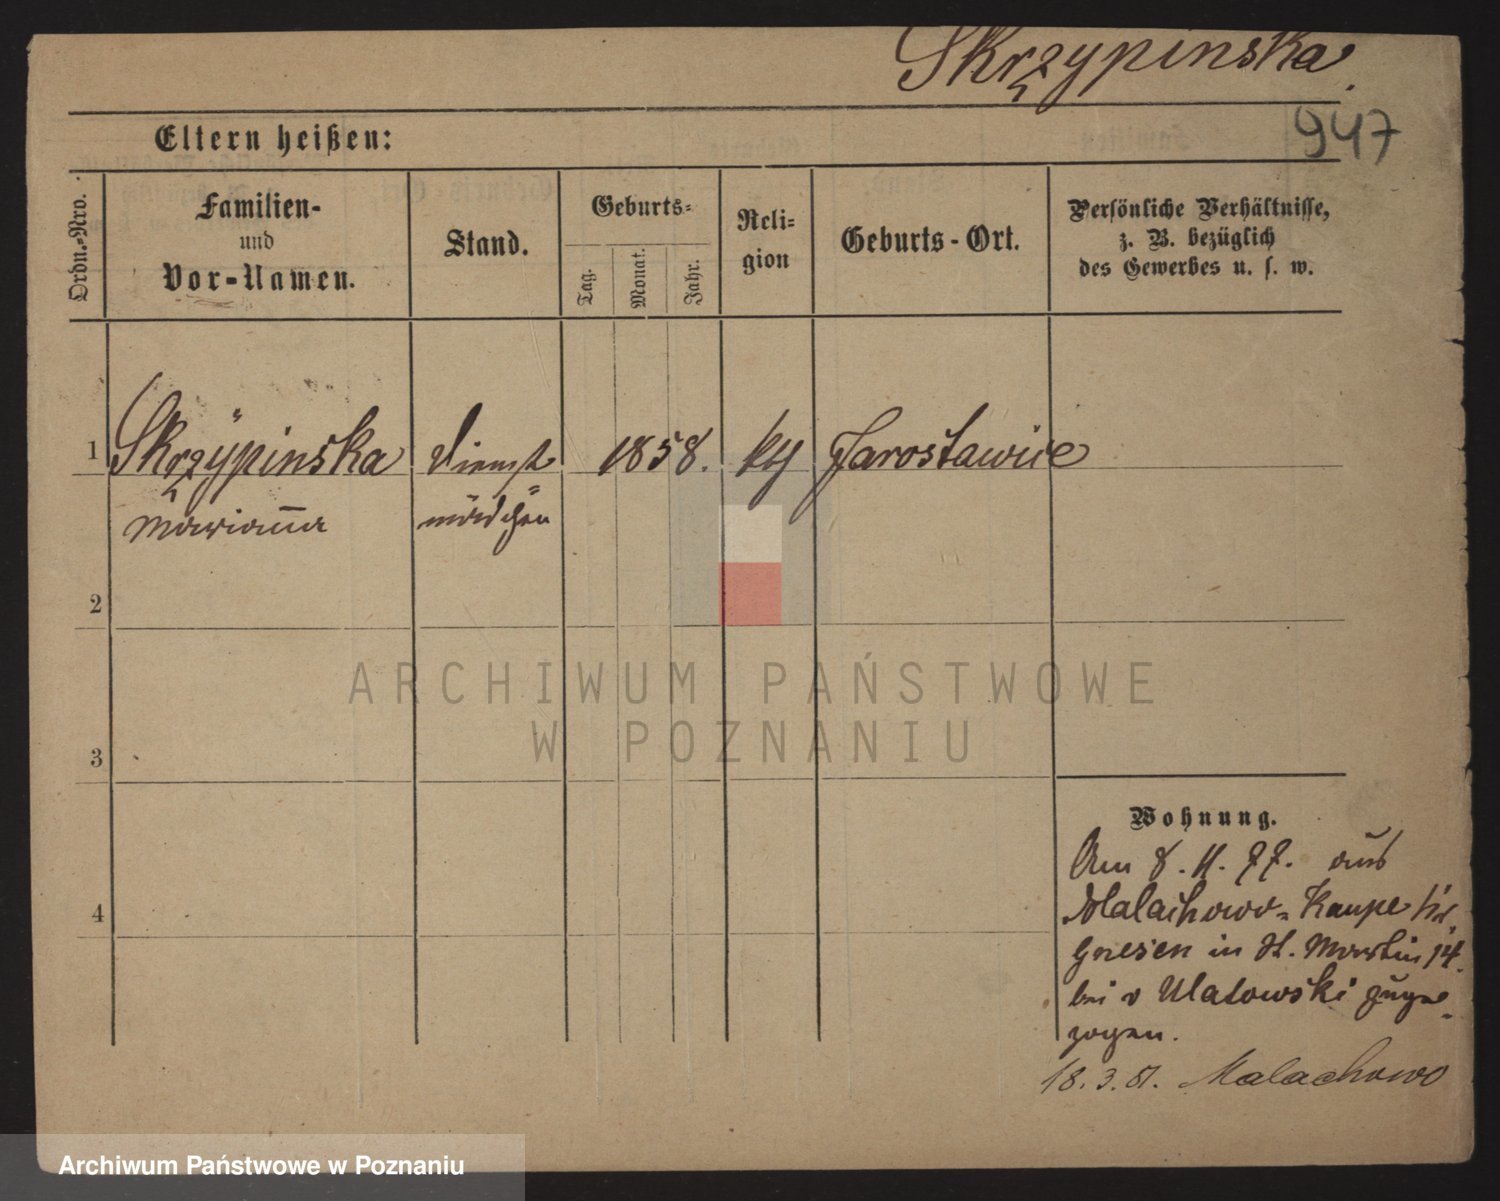 Skrzypinska
947
Eltern heißen:
Ordn.-Nro.
Familien-
und
Vor-Namen.
Stand.
Geburts-
Tag.
Monat.
Jahr.
Reli-
gion
Geburts-Ort.
Persönliche Verhältnisse,
z. B. bezüglich
des Gewerbes u. s. w.
1 Skrzypinska Dienst 1858. Jarosławice
Marianna mädchen
2
3
4
Wohnung.
Am 8. 11. 77. aus
Malachowo-Kaupe
Gnesen in St. Martin 14.
bei v Ulatowski zuge-
zogen.
18. 3. 81. Malachowo
ARCHIWUM PAŃSTWOWE
W POZNANIU
Archiwum Państwowe w Poznaniu